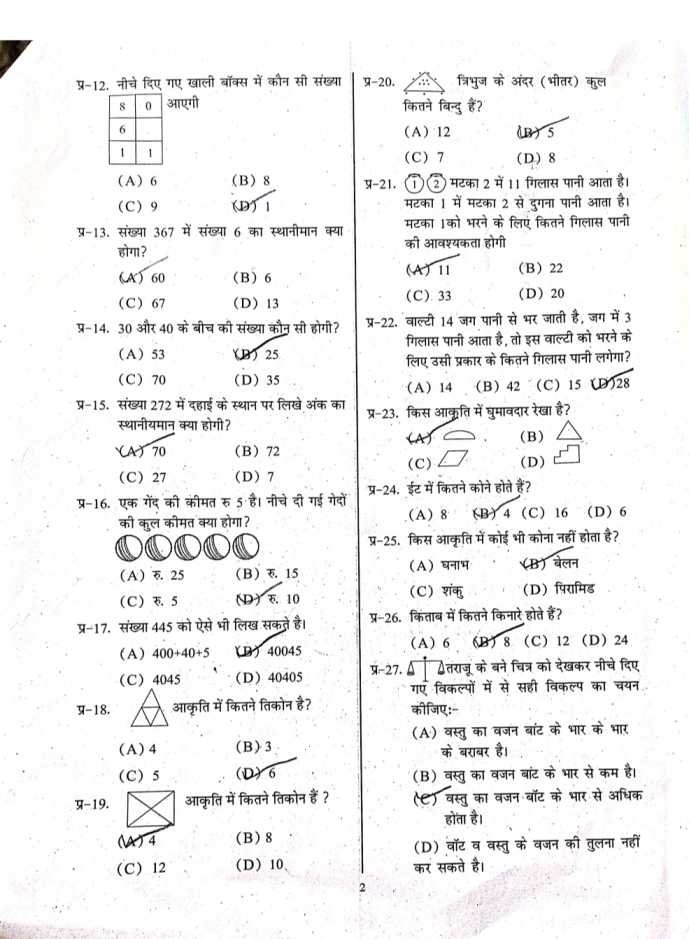 प्र-12. नीचे दिए गए खाली बॉक्स में कौन सी संख्या
8 0 आएगी
6
1 1
(A) 6 (B) 8
(C) 9 (D) 1
प्र-13. संख्या 367 में संख्या 6 का स्थानीमान क्या
होगा?
(A) 60 (B) 6
(C) 67 (D) 13
प्र-14. 30 और 40 के बीच की संख्या कौन सी होगी?
(A) 53 (B) 25
(C) 70 (D) 35
प्र-15. संख्या 272 में दहाई के स्थान पर लिखे अंक का
स्थानीयमान क्या होगी?
(A) 70 (B) 72
(C) 27 (D) 7
प्र-16. एक गेंद की कीमत रु 5 है। नीचे दी गई गेदों
की कुल कीमत क्या होगा?
(A) रु. 25 (B) रु. 15
(C) रु. 5 (D) रु. 10
प्र-17. संख्या 445 को ऐसे भी लिख सकते है।
(A) 400+40+5 (B) 40045
(C) 4045 (D) 40405
प्र-18. आकृति में कितने तिकोन है?
(A) 4 (B) 3
(C) 5 (D) 6
प्र-19. आकृति में कितने तिकोन हैं ?
(A) 4 (B) 8
(C) 12 (D) 10
प्र-20. त्रिभुज के अंदर (भीतर) कुल
कितने बिन्दु हैं?
(A) 12 (B) 5
(C) 7 (D) 8
प्र-21. 1 2 मटका 2 में 11 गिलास पानी आता है।
मटका 1 में मटका 2 से दुगना पानी आता है।
मटका 1को भरने के लिए कितने गिलास पानी
की आवश्यकता होगी
(A) 11 (B) 22
(C) 33 (D) 20
प्र-22. वाल्टी 14 जग पानी से भर जाती है, जग में 3
गिलास पानी आता है, तो इस वाल्टी को भरने के
लिए उसी प्रकार के कितने गिलास पानी लगेगा?
(A) 14 (B) 42 (C) 15 (D) 28
प्र-23. किस आकृति में घुमावदार रेखा है?
(A) (B)
(C) (D)
प्र-24. ईट में कितने कोने होते हैं?
(A) 8 (B) 4 (C) 16 (D) 6
प्र-25. किस आकृति में कोई भी कोना नहीं होता है?
(A) घनाभ (B) बेलन
(C) शंकु (D) पिरामिड
प्र-26. किताब में कितने किनारे होते हैं?
(A) 6 (B) 8 (C) 12 (D) 24
प्र-27. तराजू के बने चित्र को देखकर नीचे दिए
गए विकल्पों में से सही विकल्प का चयन
कीजिए:-
(A) वस्तु का वजन बांट के भार के भार
के बराबर है।
(B) वस्तु का वजन बांट के भार से कम है।
(C) वस्तु का वजन बॉट के भार से अधिक
होता है।
(D) वॉट व वस्तु के वजन की तुलना नहीं
कर सकते है।
2